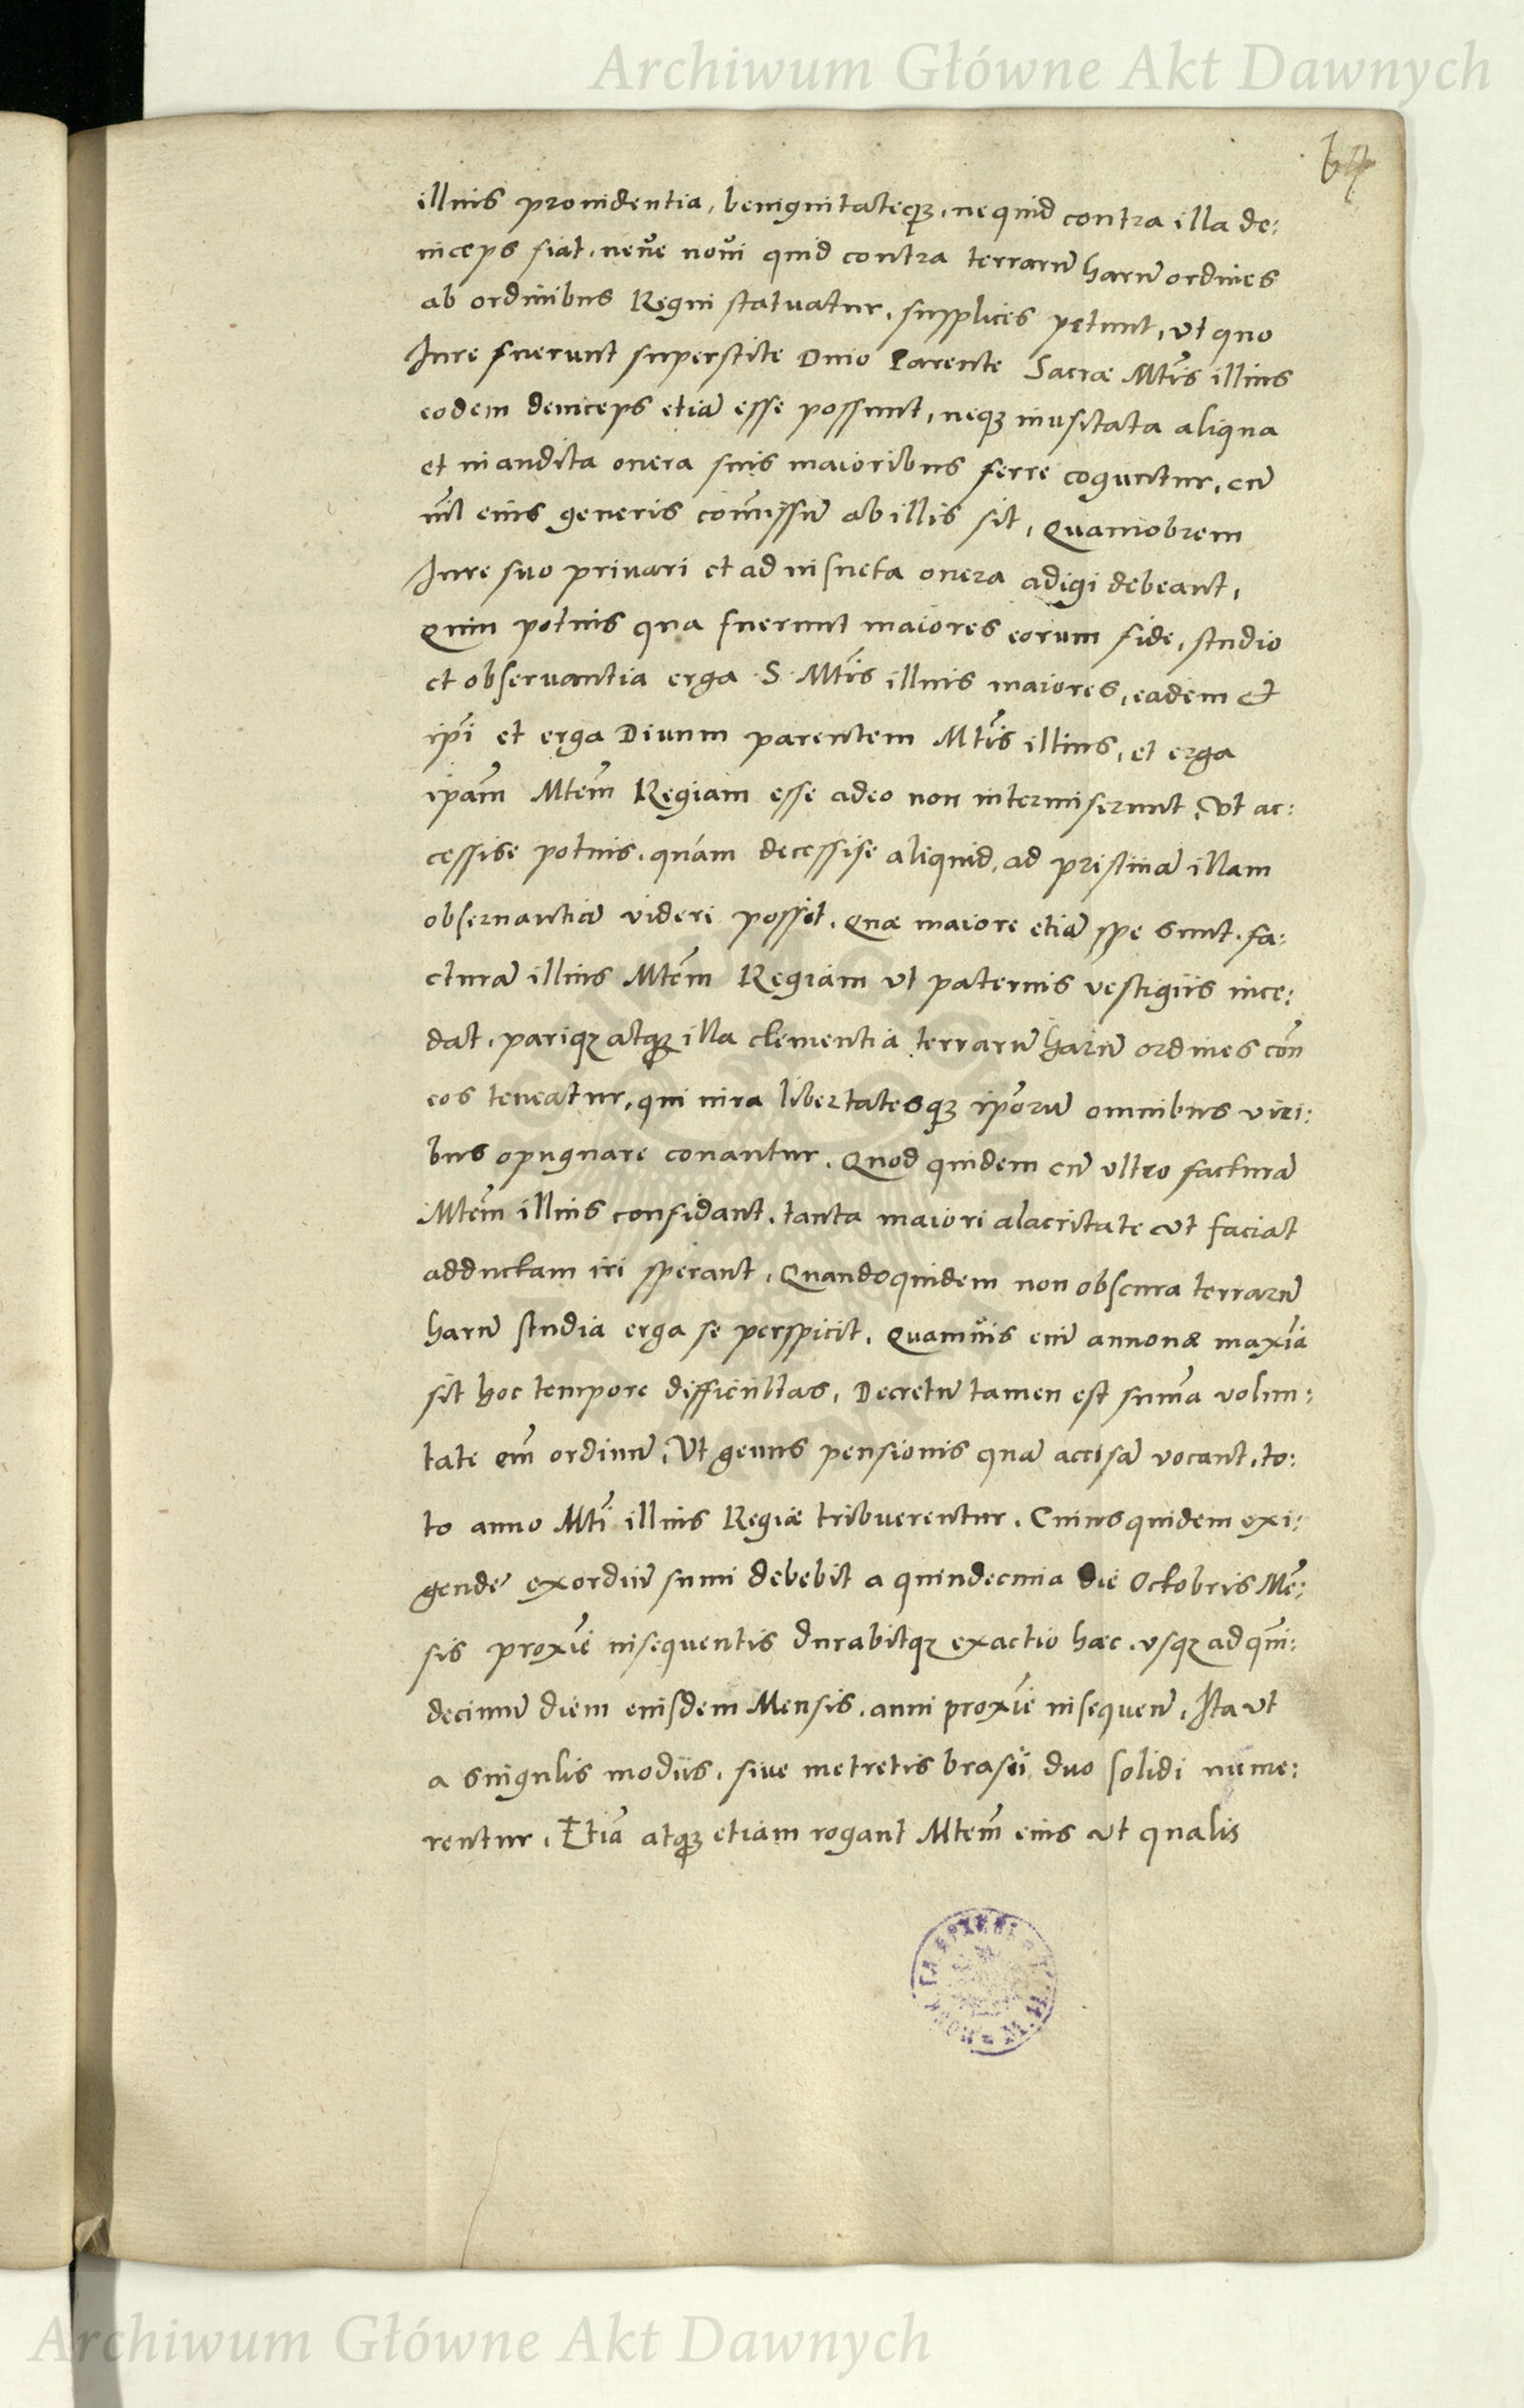 Archiwum Główne Akt Dawnych
illius providentia, benignitateq3, nequid contra illa de:
inceps fiat, neve novi quid contra terrarū harū ordines
ab ordinibus Regni statuatur, supplices petunt, ut quo
Iure fuerunt superstite Divo Parente Sacræ Mtis illius
eodem deinceps etiā esse possunt, neq3 inusitata aliqua
et inaudita onera suis maioribus ferre coguntur, cū
nil eius generis comissū ab illis sit, Quamobrem
Iure suo privari et ad insueta onera adigi debeant,
Quin potius qua fuerunt maiores eorum fide, studio
et observantia erga S. Mtis illius maiores, eadem et
ipi et erga Divum parentem Mtis illius, et erga
ipam Mtem Regiam esse adeo non intermiserunt, Ut ac:
cessise potius, quam decessise aliquid, ad pristinā illam
observantiā videri possit. Quæ maiore etiā spe sunt, fa:
cturā illius Mtem Regiam ut paternis vestigiis ince:
dat, pariq3 atq3 illa clementia terrarū harū ordines con
eos teneatur, qui iura libertatesq3 ipōrū omnibus viri:
bus opugnare conantur. Quod quidem cū ultro facturā
Mtem illius confidant, tanta maiori alacritate ut faciat
adductam iri sperant, Quandoquidem non obscura terrarū
harū studia erga se perspicit. Quamvis enī annonæ maxīa
sit hoc tempore difficultas, Decretū tamen est suma volun:
tate om̄ ordinū, Ut genus pensionis quā accisā vocant, to:
to anno Mti illius Regiæ tribuerentur. Cuius quidem exi:
gende exordiū sumi debebit a quindecima die Octobris Mē:
sis proxīe insequentis durabitq3 exactio hæc, usq3 ad quī:
decimū diem eiusdem Mensis, anni proxīe insequen̄, Ita ut
a singulis modiis, sive metretis brasii duo solidi nume:
rentur. Etiā atq3 etiam rogant Mtem eius ut qualis
Archiwum Główne Akt Dawnych